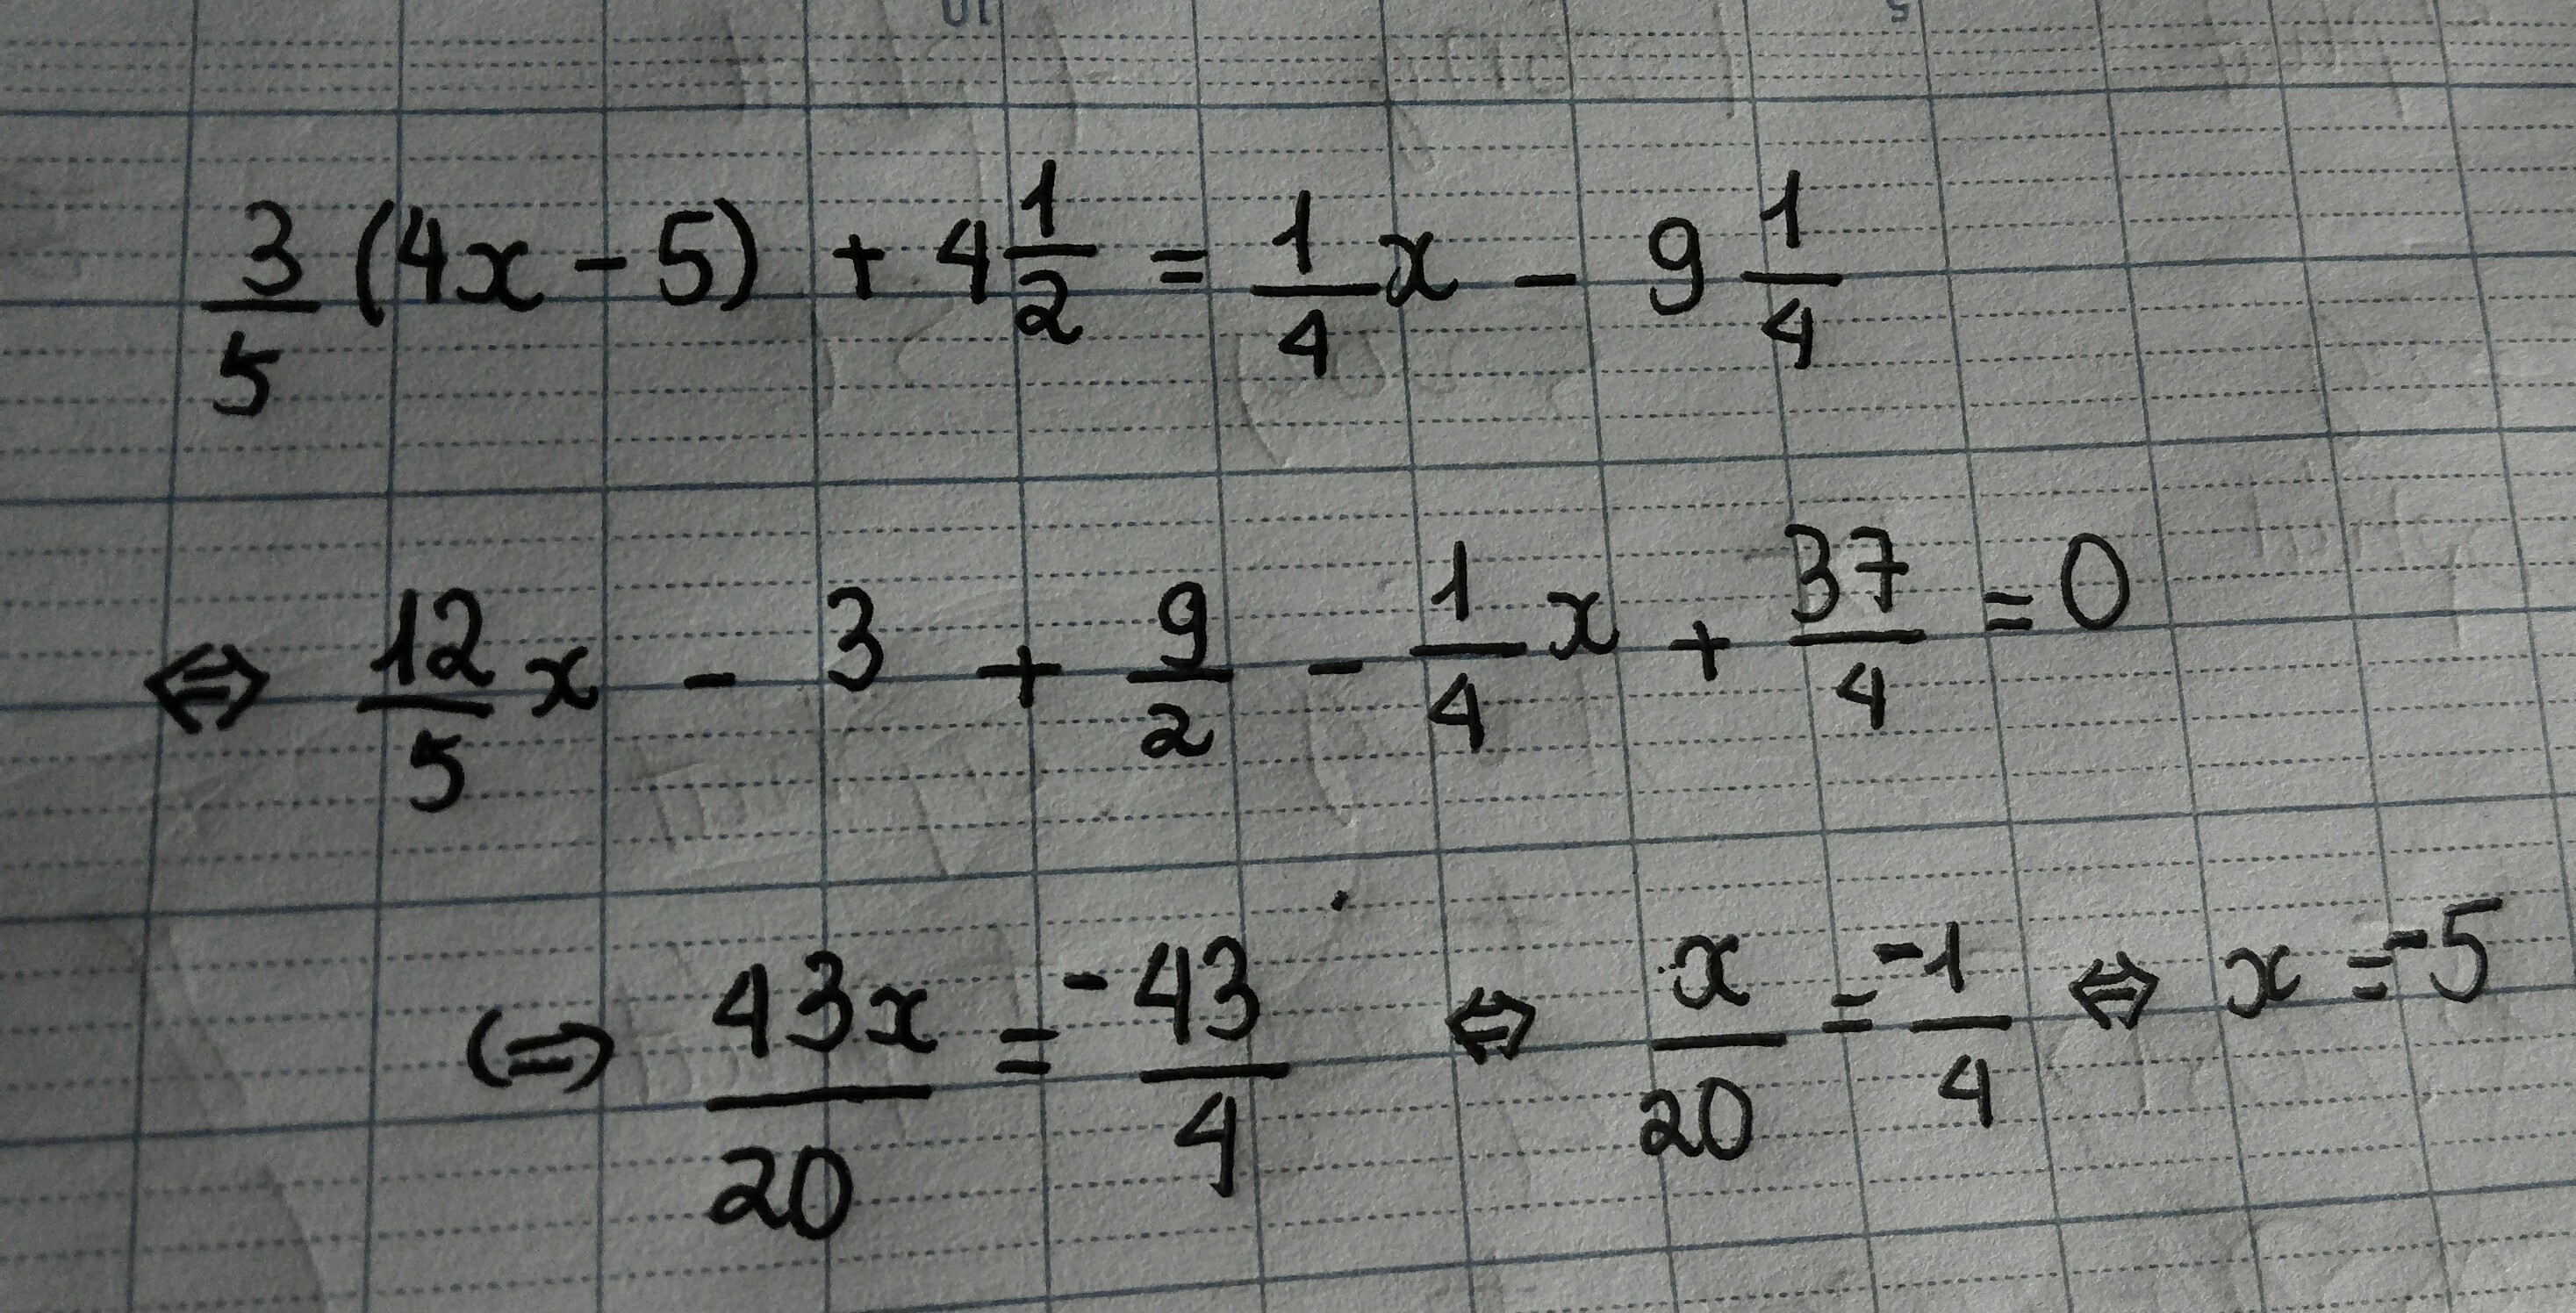 3/5 (4x - 5) + 4 1/2 = 1/4 x - 9 1/4
⇔ 12/5 x - 3 + 9/2 - 1/4 x + 37/4 = 0
⇔ 43x/20 = -43/4 ⇔ x/20 = -1/4 ⇔ x = -5